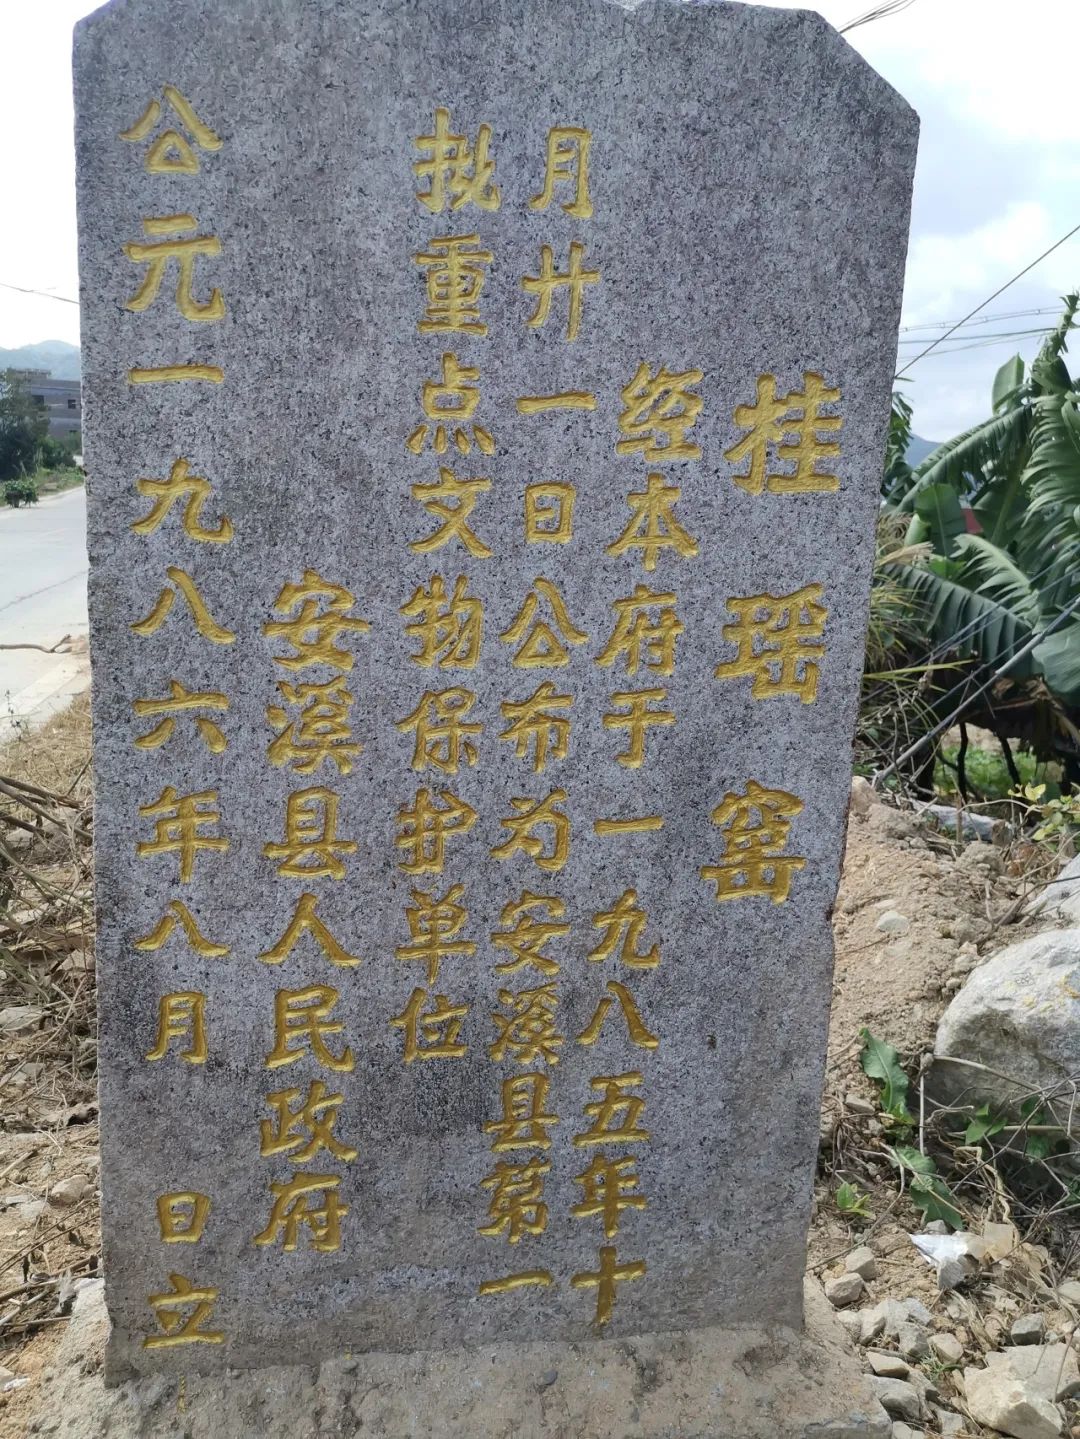 桂瑶窑
经本府于一九八五年十
月廿一日公布为安溪县第一
批重点文物保护单位
安溪县人民政府
公元一九八六年八月 日立